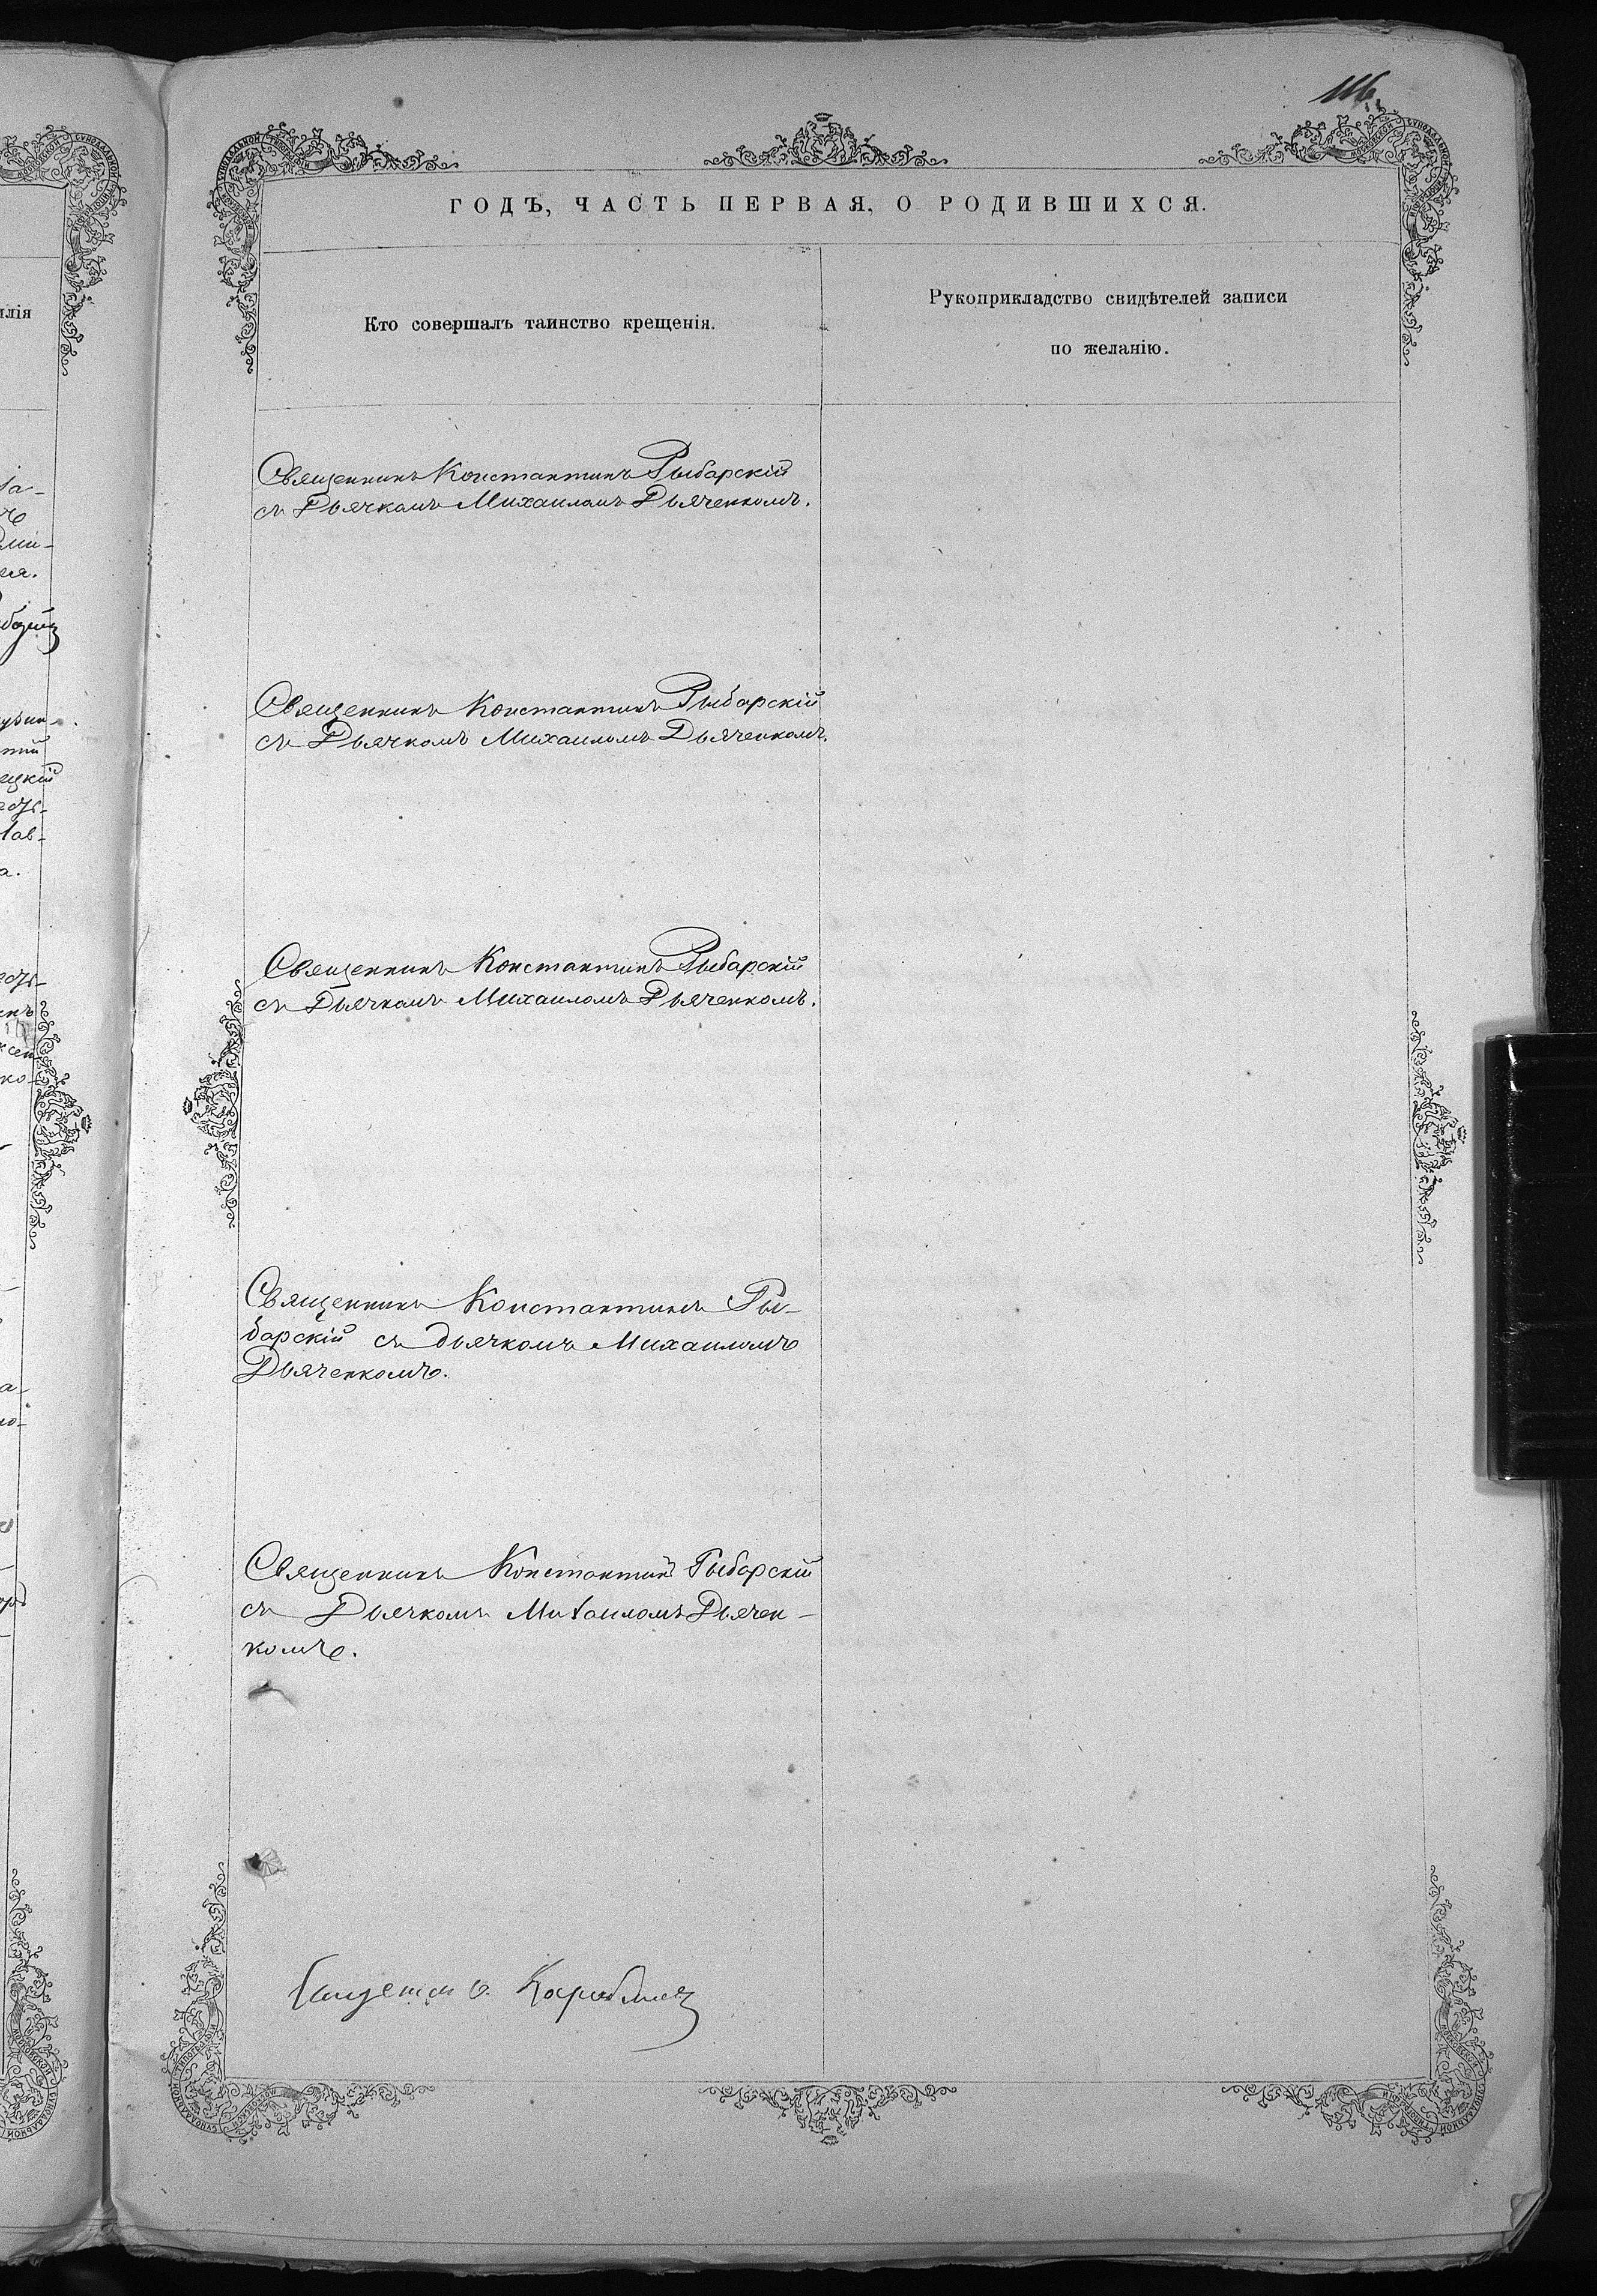 116.
ГОДЪ, ЧАСТЬ ПЕРВАЯ, О РОДИВШИХСЯ.
Кто совершалъ таинство крещенія.
Рукоприкладство свидѣтелей записи
по желанію.
Священникъ Константинъ Рыбарскій
съ Дьячкомъ Михаиломъ Дьяченкомъ.
Священникъ Константинъ Рыбарскій
съ Дьячкомъ Михаиломъ Дьяченкомъ.
Священникъ Константинъ Рыбарскій
съ Дьячкомъ Михаиломъ Дьяченкомъ.
Священникъ Константинъ Ры-
барскій съ дьячкомъ Михаиломъ
Дьяченкомъ.
Священникъ Константинъ Рыбарскій
съ Дьячкомъ Михаиломъ Дьячен-
комъ.